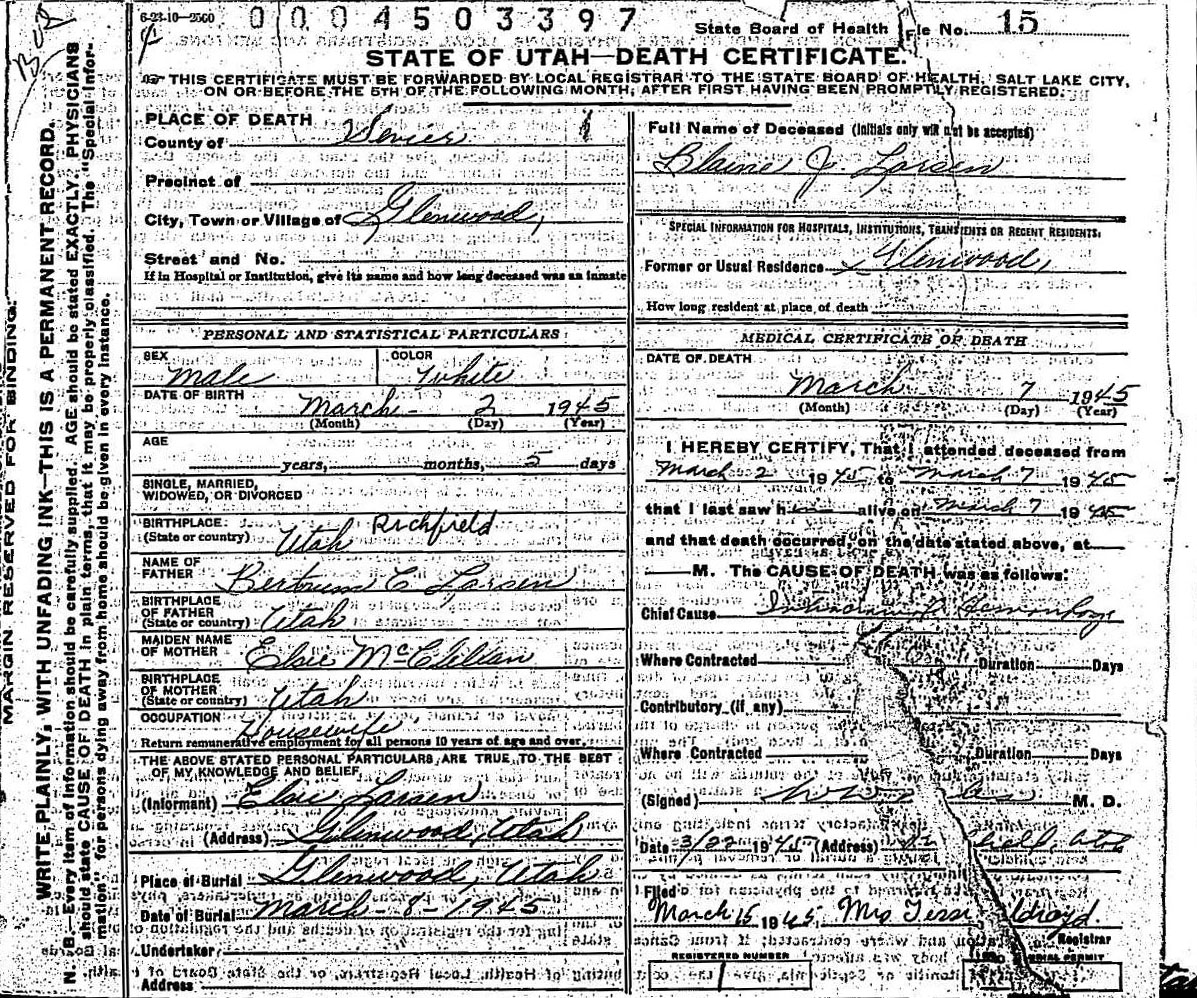 6-23-10-2500
0004503397
State Board of Health File No. 15
STATE OF UTAH—DEATH CERTIFICATE.
THIS CERTIFICATE MUST BE FORWARDED BY LOCAL REGISTRAR TO THE STATE BOARD OF HEALTH, SALT LAKE CITY,
ON OR BEFORE THE 5TH OF THE FOLLOWING MONTH, AFTER FIRST HAVING BEEN PROMPTLY REGISTERED.
MARGIN RESERVED FOR BINDING.
WRITE PLAINLY, WITH UNFADING INK—THIS IS A PERMANENT RECORD.
N. B.—Every item of information should be carefully supplied. AGE should be stated EXACTLY. PHYSICIANS
should state CAUSE OF DEATH in plain terms, that it may be properly classified. The "Special Infor-
mation" for persons dying away from home should be given in every instance.
PLACE OF DEATH
County of Sevier 1
Precinct of
City, Town or Village of Glenwood,
Street and No.
If in Hospital or Institution, give its name and how long deceased was an inmate
PERSONAL AND STATISTICAL PARTICULARS
SEX Male COLOR White
DATE OF BIRTH March - 2 1945
(Month) (Day) (Year)
AGE
years, months, 5 days
SINGLE, MARRIED,
WIDOWED, OR DIVORCED
BIRTHPLACE: Richfield
(State or country) Utah
NAME OF
FATHER Bertrum C Larsen
BIRTHPLACE
OF FATHER
(State or country) Utah
MAIDEN NAME
OF MOTHER Elsie McClellan
BIRTHPLACE
OF MOTHER
(State or country) Utah
OCCUPATION Housewife
Return remunerative employment for all persons 10 years of age and over.
THE ABOVE STATED PERSONAL PARTICULARS ARE TRUE TO THE BEST
OF MY KNOWLEDGE AND BELIEF
(Informant) Elsie Larsen
(Address) Glenwood, Utah
Place of Burial Glenwood, Utah
Date of Burial March - 8 - 1945
Undertaker
Address
Full Name of Deceased (Initials only will not be accepted)
Blaine J. Larsen
SPECIAL INFORMATION FOR HOSPITALS, INSTITUTIONS, TRANSIENTS OR RECENT RESIDENTS.
Former or Usual Residence Glenwood,
How long resident at place of death
MEDICAL CERTIFICATE OF DEATH
DATE OF DEATH
March 7 1945
(Month) (Day) (Year)
I HEREBY CERTIFY, That I attended deceased from
March 2 1945 to March 7 1945
that I last saw h alive on March 7 1945
and that death occurred, on the date stated above, at
M. The CAUSE OF DEATH was as follows:
Chief Cause Intracranial Hemorrhage
Where Contracted Duration Days
Contributory (if any)
Where Contracted Duration Days
(Signed) M. D.
Date 3/22 1945 (Address)
Filed
March 15 1945, Mrs
Registrar
REGISTERED NUMBER
1
BURIAL PERMIT